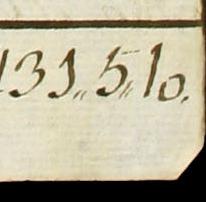 431„5„10.